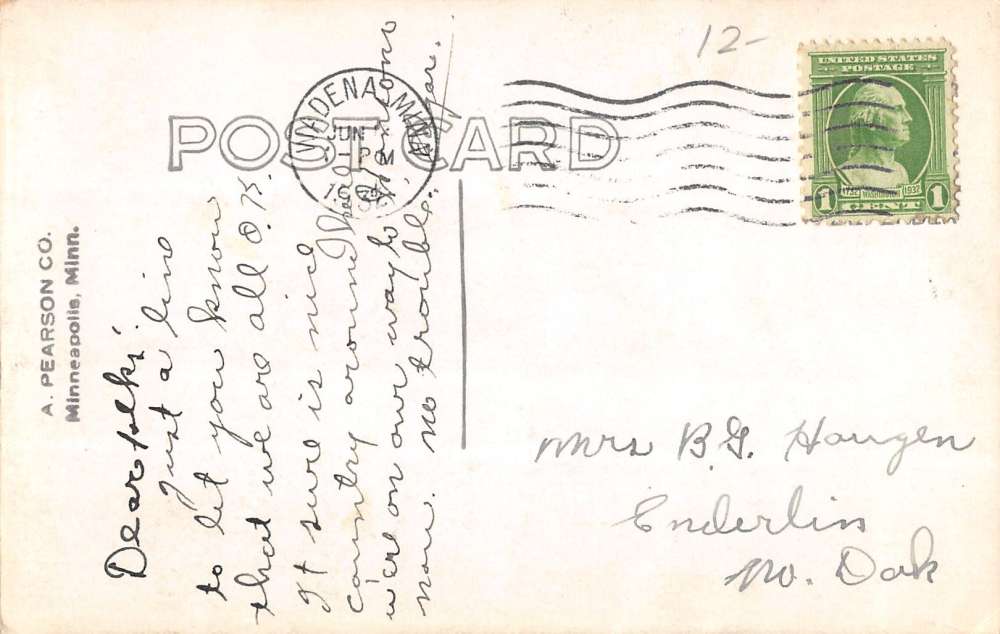 12-
UNITED STATES
POSTAGE
1732 WASHINGTON 1932
1 CENT 1
WADENA, MINN.
JUN
1 PM
POST CARD
A. PEARSON CO.
Minneapolis, Minn.
Dear folks,
Just a line
to let you know
that we are all O.K.
It sure is nice
country around here
were on our way to
now. no trouble.
Mrs B.G. Haugen
Enderlin
No. Dak